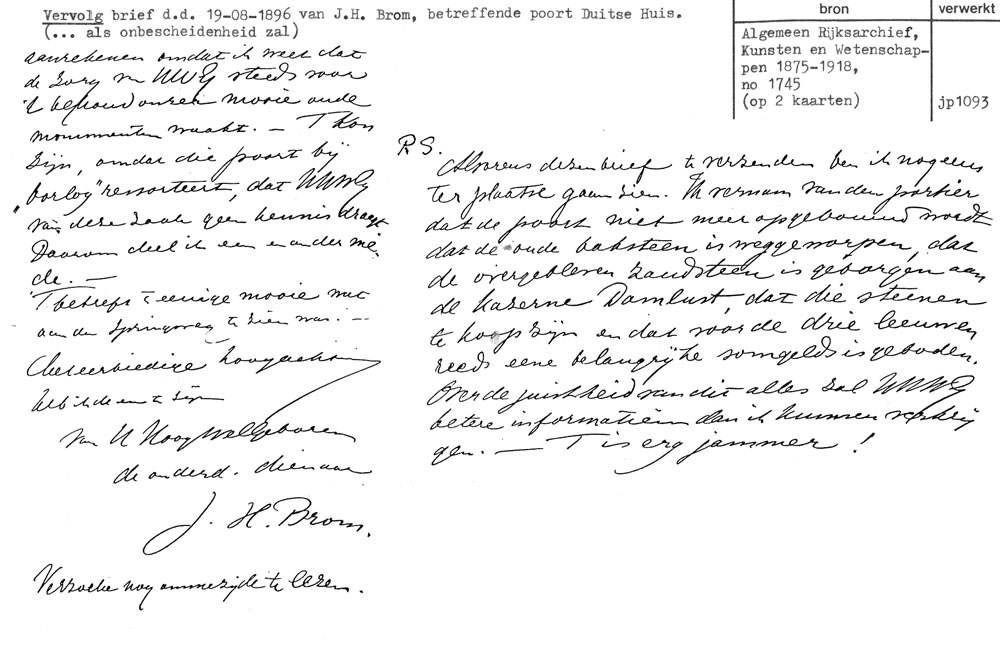 Vervolg brief d.d. 19-08-1896 van J.H. Brom, betreffende poort Duitse Huis.
(... als onbescheidenheid zal)
bron
verwerkt
Algemeen Rijksarchief,
Kunsten en Wetenschap-
pen 1875-1918,
no 1745
(op 2 kaarten)
jp1093
aanrekenen omdat ik weet dat
de zorg van UWG steeds voor
't behoud onzer mooie oude
monumenten waakt. — 'T kon
zijn, omdat die poort bij
"oorlog" ressorteert, dat UHWG
van deze zaak geen kennis draagt
Daarom deel ik een en ander mê
de. —
'T betreft 't eenige mooie wat
aan den Springweg te zien was. —
Eerbiedige hoogachting
heb ik de eer te zijn
van U HoogWelGeboren
de onderd. dienaar
J. H. Brom.
Verzoeke nog ommezijde te lezen.
P.S.
Alvorens dezen brief te verzenden ben ik nog eens
ter plaatse gaan zien. Ik vernam van den portier
dat de poort niet meer opgebouwd wordt
dat de oude baksteen is weggeworpen, dat
de overgebleven zandsteen is geborgen aan
de kazerne Damlust, dat die steenen
te koop zijn en dat voor de drie leeuwen
reeds eene belangrijke som gelds is geboden.
Over de juistheid van dit alles zal UHWG
betere informatiën dan ik kunnen verkrij
gen. — 'T is erg jammer!